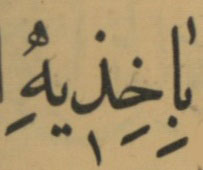 بِاٰخِذيهُِ